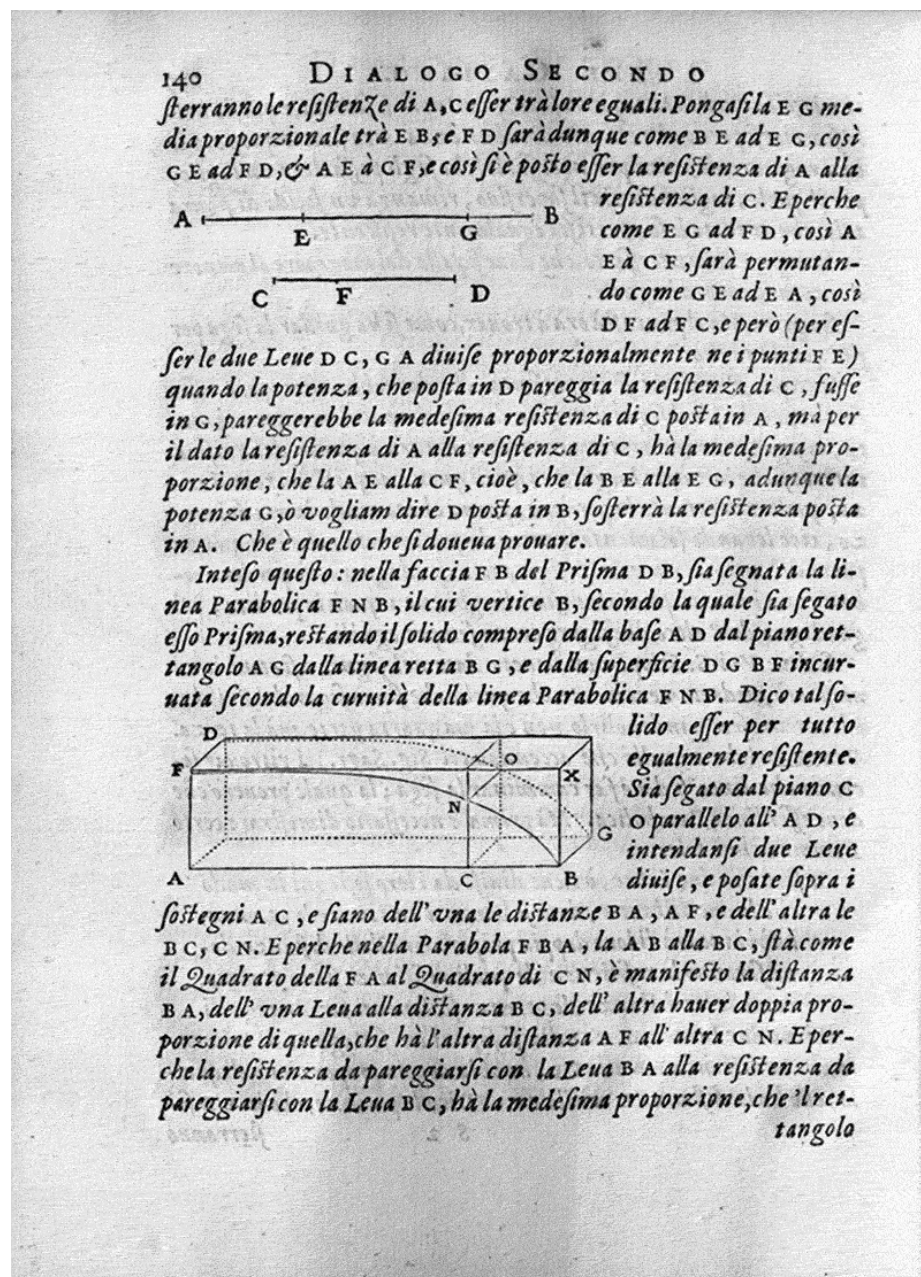 140 DIALOGO SECONDO
ſterranno le reſiſtenze di A, C eſſer trà lore eguali. Pongaſi la E G me-
dia proporzionale trà E B, e F D ſarà dunque come B E ad E G, così
G E ad F D, & A E à C F, e così ſi è poſto eſſer la reſiſtenza di A alla
reſiſtenza di C. E perche
come E G ad F D, così A
E à C F, ſarà permutan-
do come G E ad E A, così
D F ad F C, e però (per eſ-
A E G B
C F D
ſer le due Leue D C, G A diuiſe proporzionalmente ne i punti F E)
quando la potenza, che poſta in D pareggia la reſiſtenza di C, fuſſe
in G, pareggerebbe la medeſima reſiſtenza di C poſta in A, mà per
il dato la reſiſtenza di A alla reſiſtenza di C, hà la medeſima pro-
porzione, che la A E alla C F, cioè, che la B E alla E G, adunque la
potenza G, ò vogliam dire D poſta in B, ſoſterrà la reſiſtenza poſta
in A. Che è quello che ſi doueua prouare.
Inteſo queſto: nella faccia F B del Priſma D B, ſia ſegnata la li-
nea Parabolica F N B, il cui vertice B, ſecondo la quale ſia ſegato
eſſo Priſma, reſtando il ſolido compreſo dalla baſe A D dal piano ret-
tangolo A G dalla linea retta B G, e dalla ſuperficie D G B F incur-
uata ſecondo la curuità della linea Parabolica F N B. Dico tal ſo-
lido eſſer per tutto
egualmente reſiſtente.
Sia ſegato dal piano C
O parallelo all' A D, e
intendanſi due Leue
diuiſe, e poſate ſopra i
D
F O X
N G
A C B
ſoſtegni A C, e ſiano dell' vna le diſtanze B A, A F, e dell' altra le
B C, C N. E perche nella Parabola F B A, la A B alla B C, ſtà come
il Quadrato della F A al Quadrato di C N, è manifeſto la diſtanza
B A, dell' vna Leua alla diſtanza B C, dell' altra hauer doppia pro-
porzione di quella, che hà l'altra diſtanza A F all' altra C N. E per-
che la reſiſtenza da pareggiarſi con la Leua B A alla reſiſtenza da
pareggiarſi con la Leua B C, hà la medeſima proporzione, che 'l ret-
tangolo